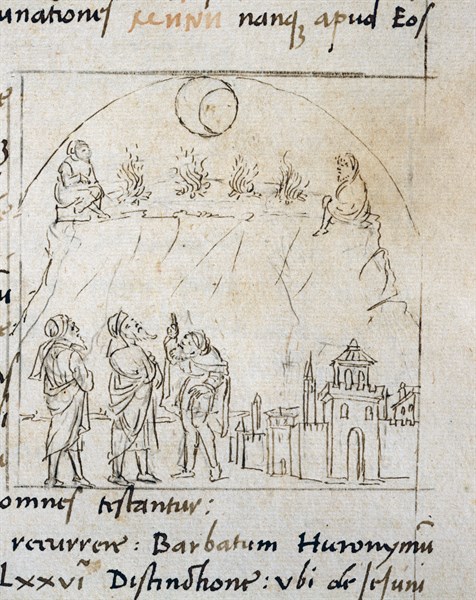 unationes nanq apud Eos
omnes testantur:
recurrere: Barbatum Hieronymū
LXXVI Distinctione: vbi de Ieiuni